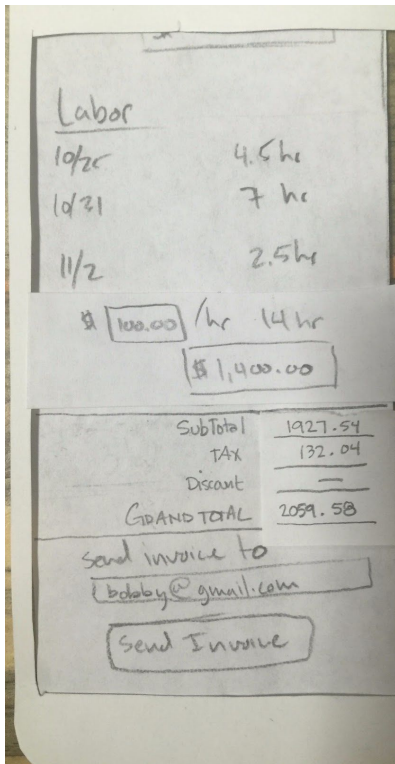 Labor
10/25 4.5 hr
10/31 7 hr
11/2 2.5 hr
$ 100.00 /hr 14 hr
$ 1,400.00
SubTotal 1927.54
TAX 132.04
Discount —
GRAND TOTAL 2059.58
Send invoice to
bobby@gmail.com
Send Invoice